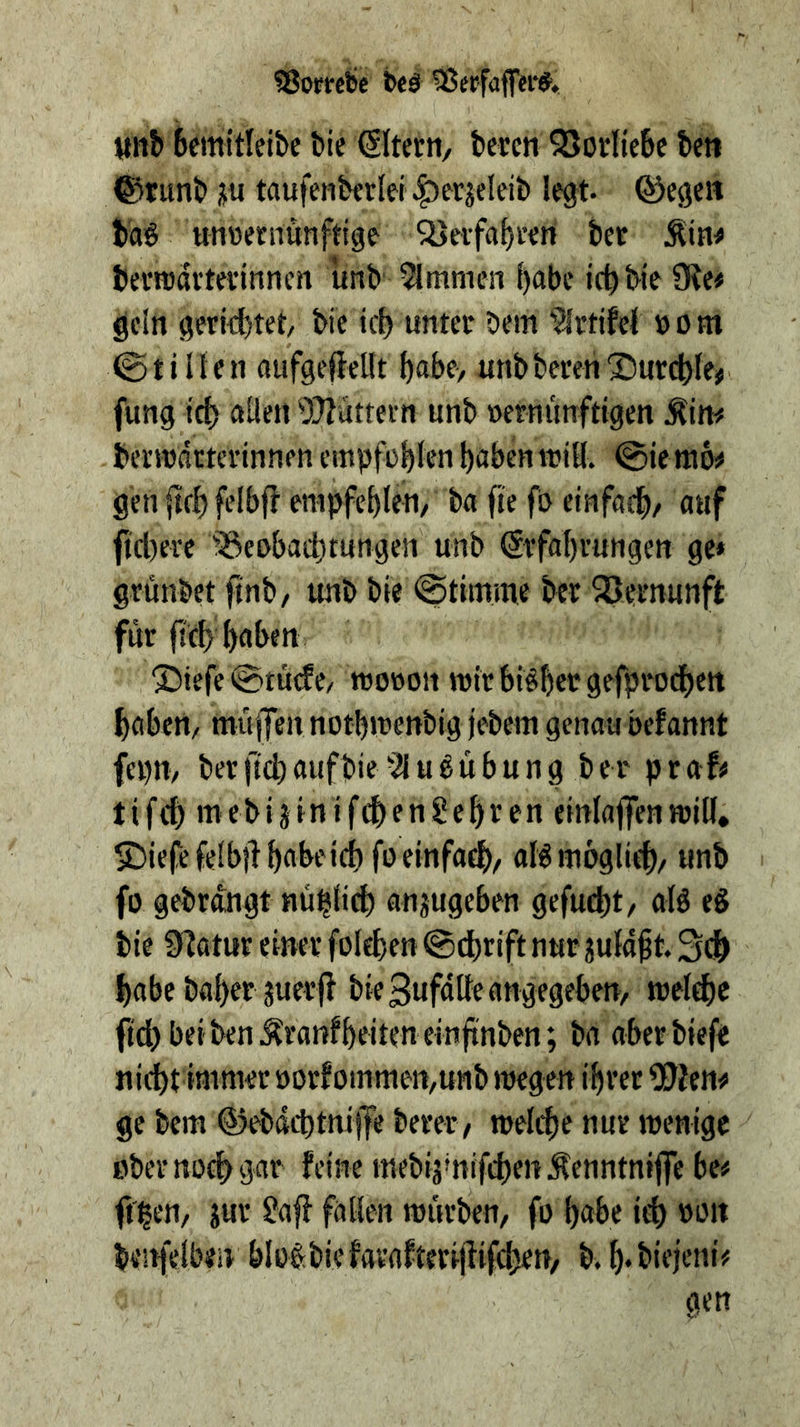 Vorrede des Verfassers.
und bemitleide die Eltern, deren Vorliebe den
Grund zu tausenderlei Herzeleid legt. Gegen
das unvernünftige Verfahren der Kin⸗
derwärterinnen und Ammen habe ich die Re⸗
geln gerichtet, die ich unter dem Artikel vom
Stillen aufgestellt habe, und deren Durchle⸗
sung ich allen Müttern und vernünftigen Kin⸗
derwärterinnen empfohlen haben will. Sie mö⸗
gen sich selbst empfehlen, da sie so einfach, auf
sichere Beobachtungen und Erfahrungen ge⸗
gründet sind, und die Stimme der Vernunft
für sich haben
Diese Stücke, wovon wir bisher gesprochen
haben, müssen nothwendig jedem genau bekannt
seyn, der sich auf die Ausübung der prak⸗
tisch medizinischen Lehren einlassen will.
Diese selbst habe ich so einfach, als möglich, und
so gedrängt nützlich anzugeben gesucht, als es
die Natur einer solchen Schrift nur zuläßt. Ich
habe daher zuerst die Zufälle angegeben, welche
sich bei den Krankheiten einfinden; da aber diese
nicht immer vorkommen, und wegen ihrer Men⸗
ge dem Gedächtnisse derer, welche nur wenige
oder noch gar keine medizinischen Kenntnisse be⸗
sitzen, zur Last fallen würden, so habe ich von
denselben blos die karakteristischen, d. h. diejeni⸗
gen